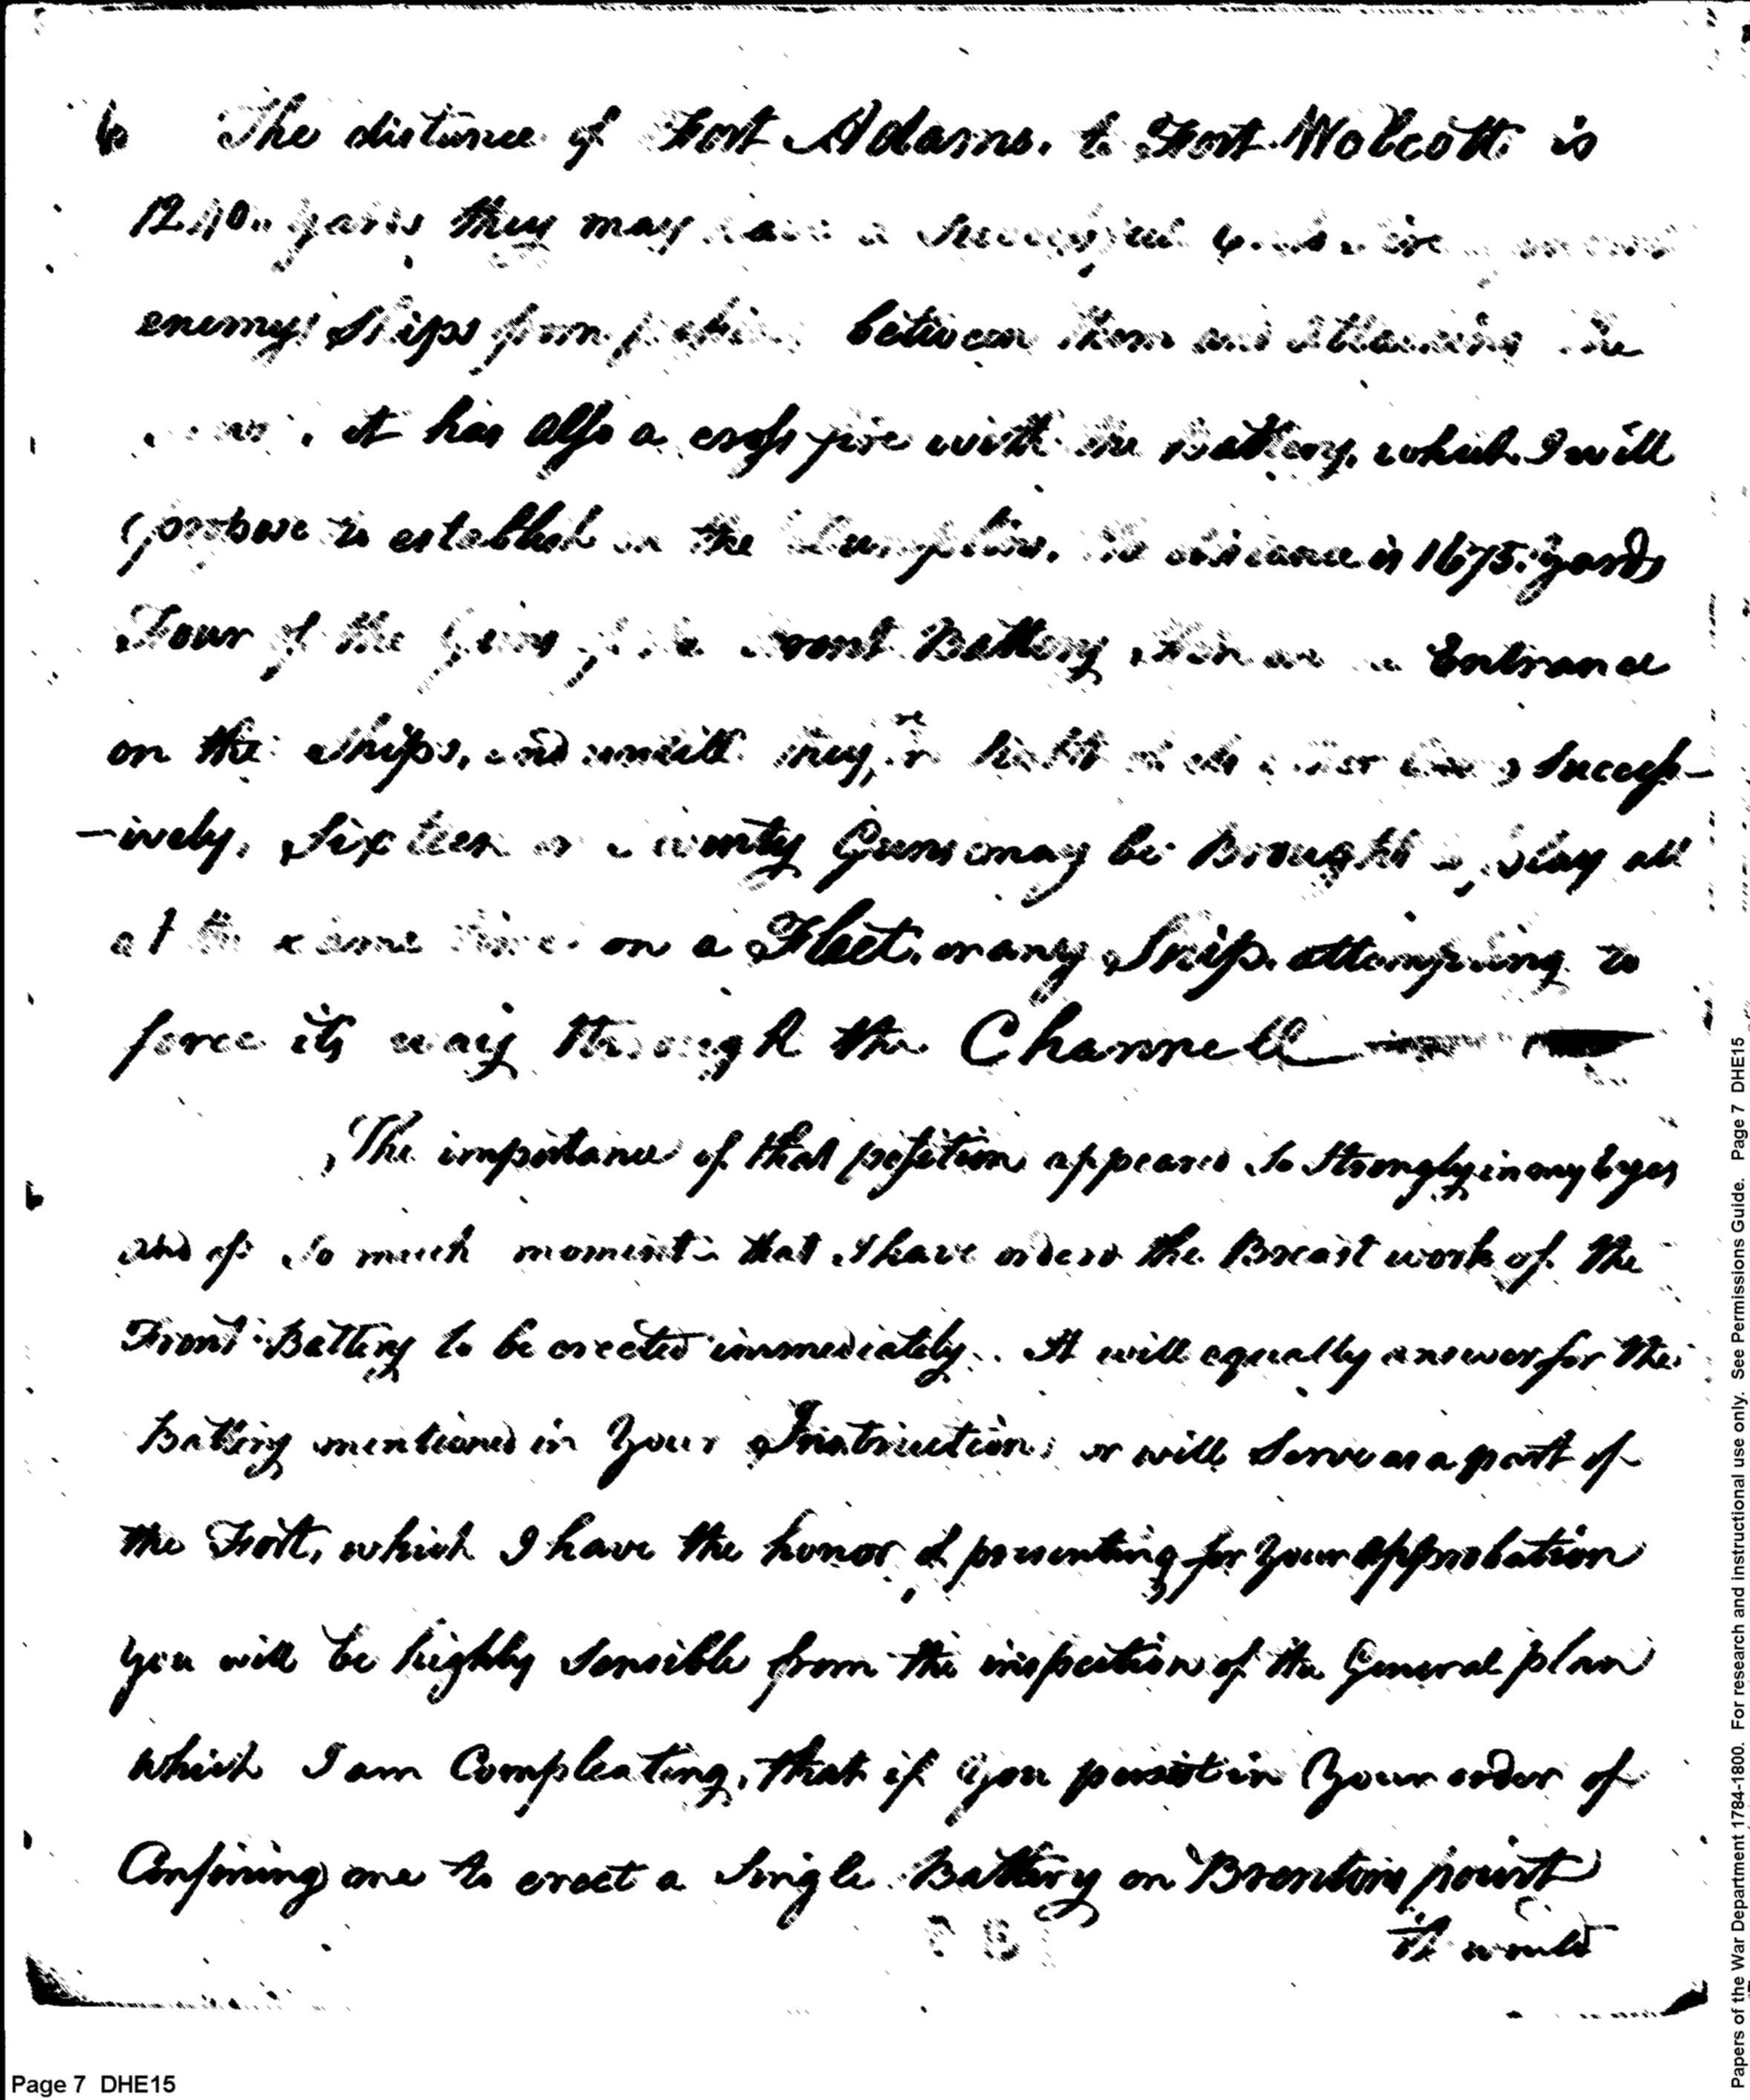 6 The distance of Fort Adams. to Fort Wolcott is
yards they may a
enemys Ships from between them and the
it has also a cross fire with the Battery, which I will
propose to establish on the Dumplins. the distance is 1675. yards
Four of the Guns of the Front Battery Entrance
on the Ships, and untill they, Success-
-ively. Sixteen or twenty Guns may be Brought to play all
at the same time on a Fleet. or any Ship. attempting to
force its way through the Channell
The importance of that position appeares So Strongly in my Eyes
and of So much moment that I have orderd the Breast work of the
Front Battery to be erected immediately. It will equally answer for the
Battery mentioned in Your Instructions or will Serve as a part of
the Fort, which I have the honor of presenting for Your approbation
You will be highly Sensible from the inspection of the General plan
which I am Compleating, that if You persist in Your order of
Confining me to erect a Single Battery on Brentons point
It would
Page 7 DHE15
Papers of the War Department 1784-1800. For research and instructional use only. See Permissions Guide. Page 7 DHE15